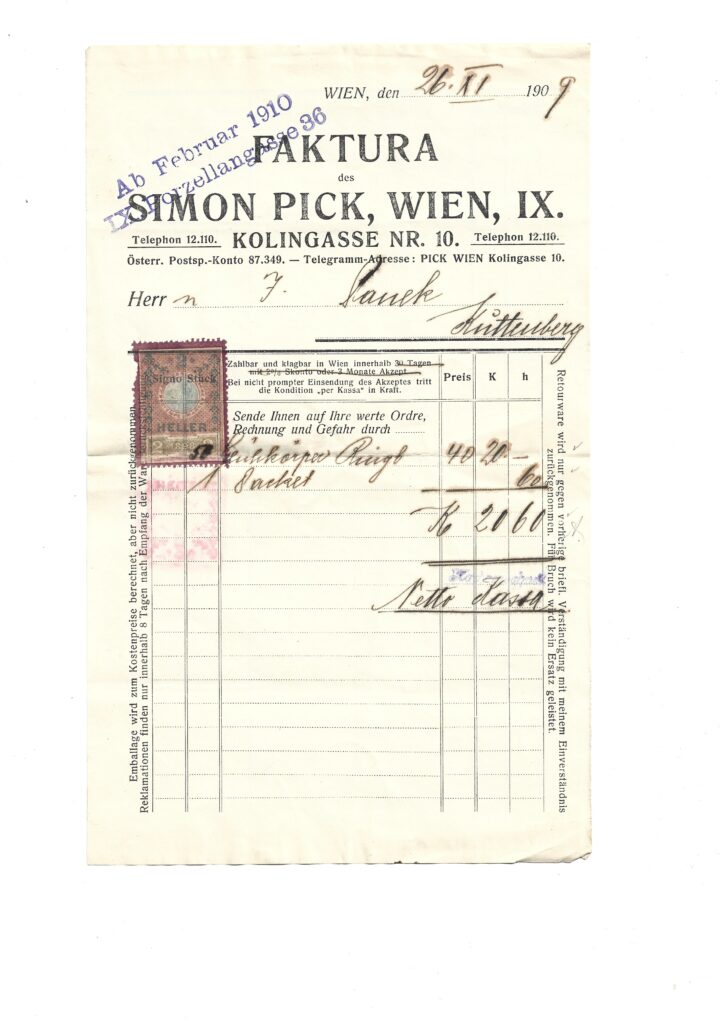 WIEN, den 26. XI 1909
Ab Februar 1910
IX Porzellangasse 36
FAKTURA
des
SIMON PICK, WIEN, IX.
Telephon 12.110. KOLINGASSE NR. 10. Telephon 12.110.
Österr. Postsp.-Konto 87.349. — Telegramm-Adresse: PICK WIEN Kolingasse 10.
Herrn J. Vanek
Kuttenberg
Zahlbar und klagbar in Wien innerhalb 30 Tagen
mit 2% Skonto oder 3 Monate Akzept
Bei nicht prompter Einsendung des Akzeptes tritt
die Kondition „per Kassa" in Kraft.
Preis K h
2
Signo Stück
HELLER
2 2
Sende Ihnen auf Ihre werte Ordre,
Rechnung und Gefahr durch
50 Glühkörper 40 20.—
1 Packet 60
K 20 60
Netto Kassa
Emballage wird zum Kostenpreise berechnet, aber nicht zurückgenommen.
Reklamationen finden nur innerhalb 8 Tagen nach Empfang der
Retourware wird nur gegen vorherige briefl. Verständigung mit meinem Einverständnis
zurückgenommen. Für Bruch wird kein Ersatz geleistet.